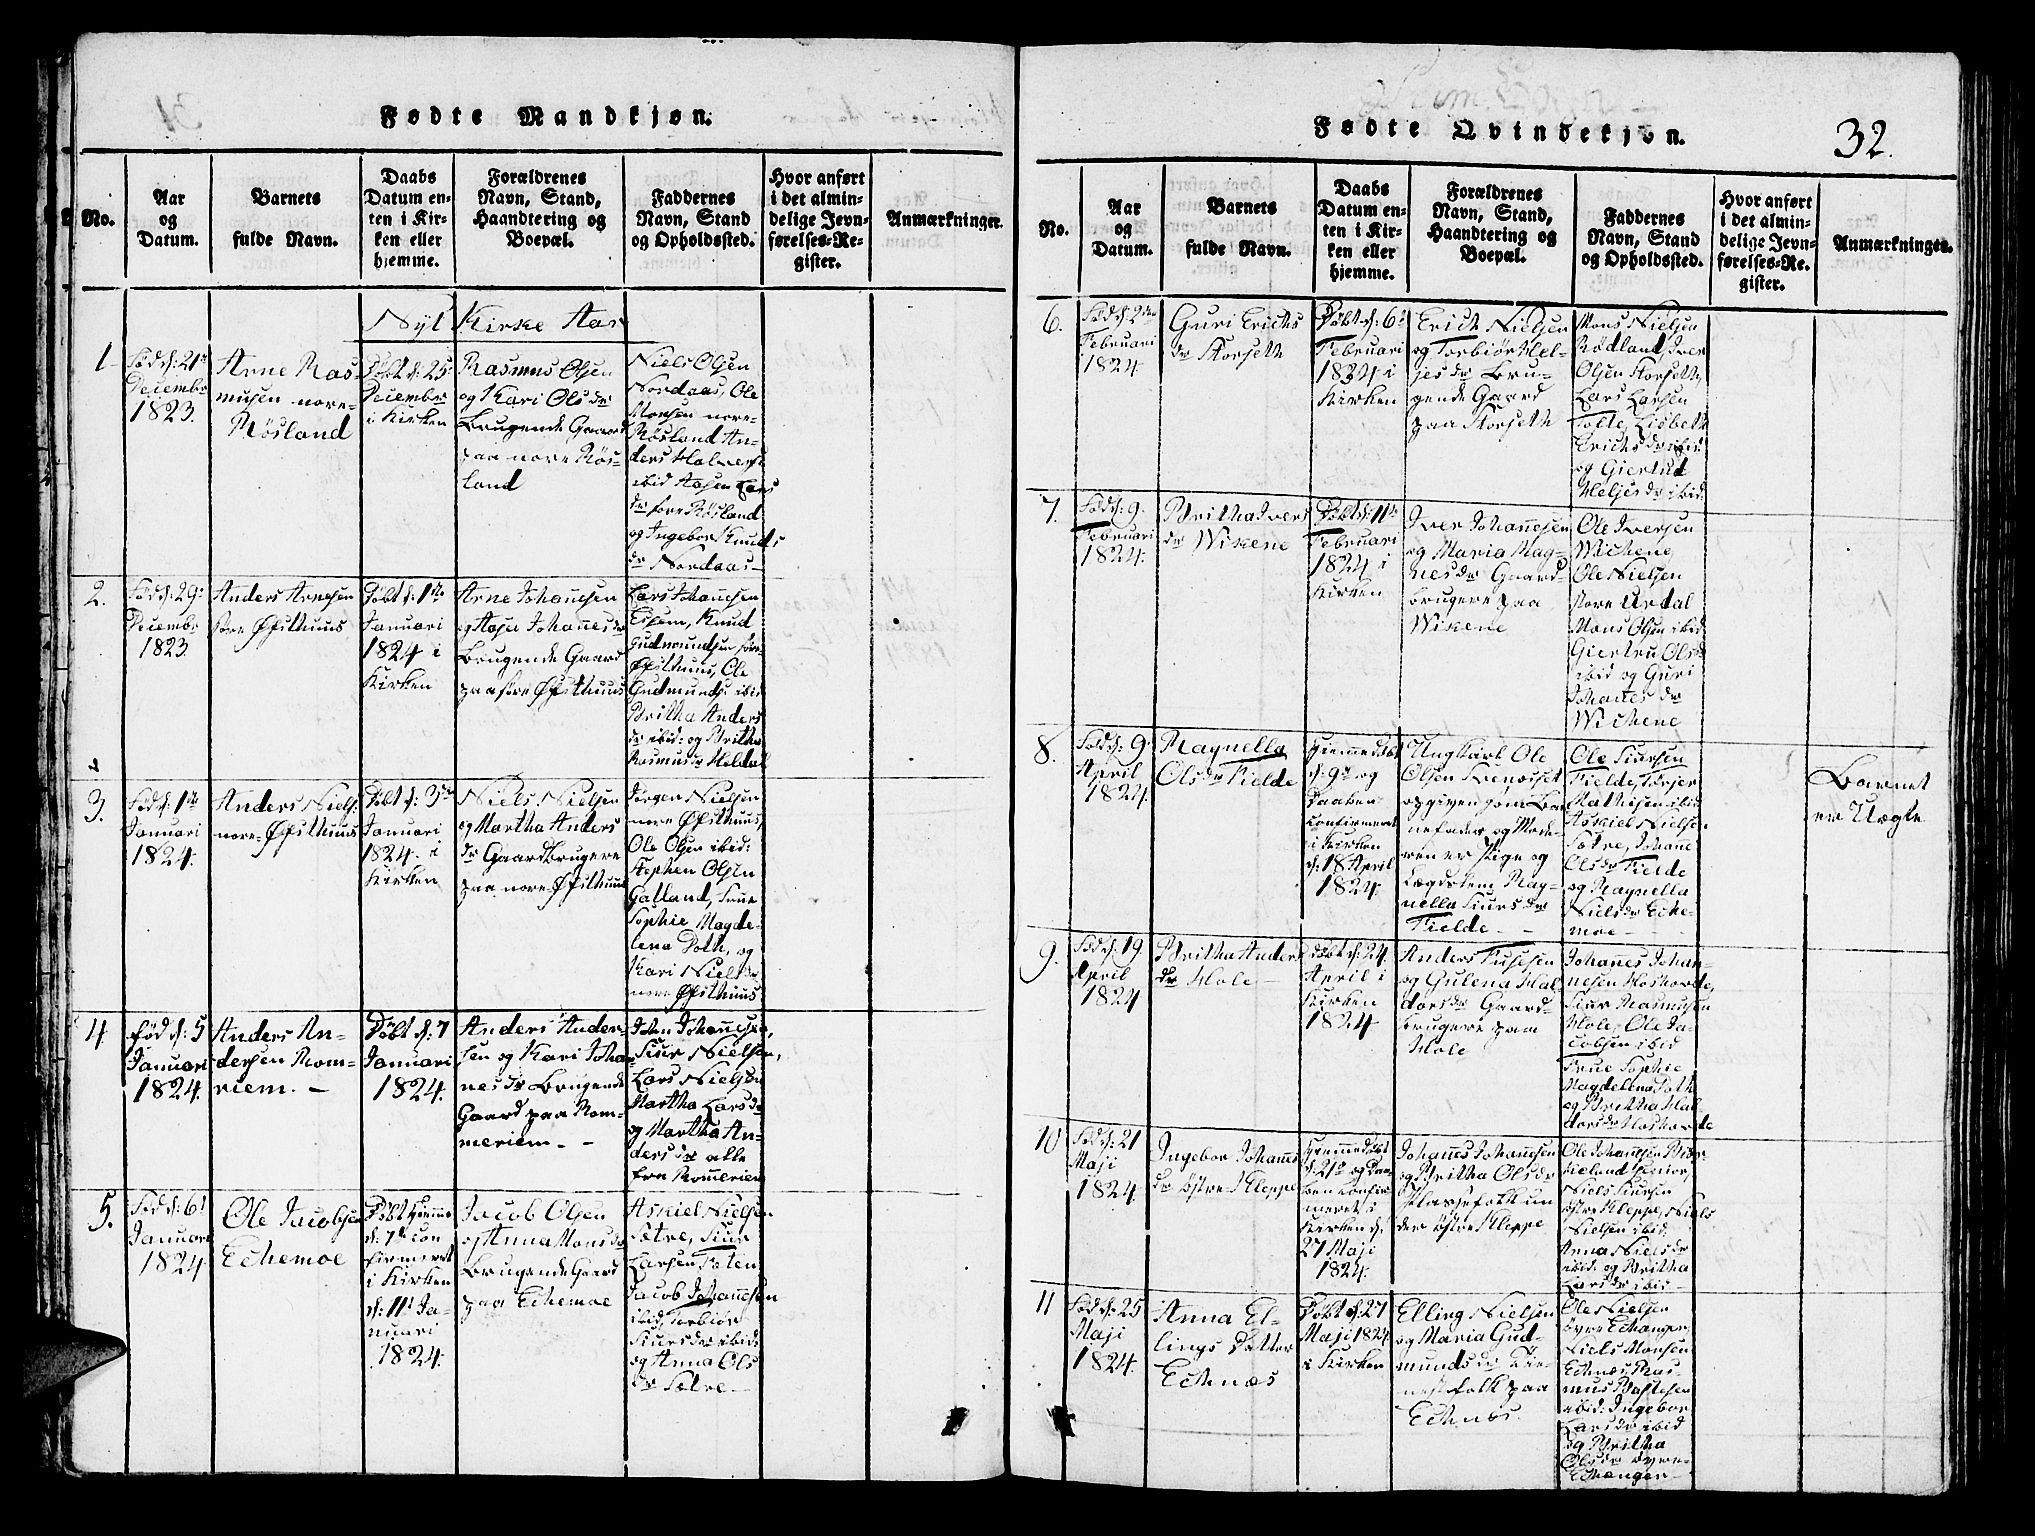 Fødte Mandkjøn.
No.
Aar
og
Datum.
Barnets
fulde Navn.
Daabs
Datum en-
ten i Kir-
ken eller
hjemme.
Forældrenes
Navn, Stand,
Haandtering og
Boepæl.
Faddernes
Navn, Stand
og Opholdssted.
Hvor anført
i det almin-
delige Jevn-
førelses-Re-
gister.
Anmærkninger.
Nyt Kirke Aar
1
Fød d: 21de
Decembr
1823.
Arne Ras-
musen nore-
Røsland
Døbt d: 25
Decembr
i Kirken
Rasmus Olsen
og Kari Olsdr
Brugende Gaard
paa nore Røs-
land
Niels Olsen
Nordaas, Ole
Monsen nore-
Røsland An-
ders Halvors:
ibid Aasen Lars
dr søre Røsland
og Ingebor Knuds
dr Nordaas
2.
Fød d: 29
Decembr
1823
Anders Arnesen
søre Øfsthuus
Døbt d: 1ste
Januari
1824 i
Kirken
Arne Johannesen
og Aasa Johannesdr
Brugende Gaard
paa søre Øfsthuus
Lars Johannesen
Knud
Gudmundsen søre
Øfsthuus, Ole
Gudmunds: ibid
Britha Anders
dr ibid: og Britha
Rasmusdr Heldal
3.
Fød d: 1ste
Januari
1824.
Anders Niels:
nore-Øfsthuus
Døbt d: 3die
Januari
1824. i
Kirken
Niels Nielsen
og Martha Anders
dr Gaardbrugere
paa nore-Øfsthuus
Jørgen Nielsen
nore Øfsthuus,
Ole Olsen ibid:
Stephen Olsen
Galland, Frue
Sophie Magde-
lena Poth, og
Kari Nielsdr
nore Øfsthuus
4
Fød d: 5
Januari
1824.
Anders An-
dersen Rom-
riem. -
Døbt d: 7
Januari
1824.
Anders Ander-
sen og Kari Joha-
nesdr Brugende
Gaard paa Rom-
meriem. -
John Johannesen,
Siur Nielsen,
Lars Nielsen
Martha Larsdr
og Martha An-
dersdr alle
fra Romeriem
5.
Fød d: 6te
Januari
1824
Ole Jacobsen
Echemoe
Døbt Hiemme
d: 7de con
firmeret
i Kirken
d: 11te Ja-
nuari
1824.
Jacob Olsen
og Anna Monsdr
Brugende Gaard
paa Echemoe
Askiel Nielsen
Sætre, Siur
Larsen Foten
Jacob Johannesen
ibid, Torbiør
Siursdr ibid:
og Anna Ols
dr Sætre
Fødte Qvindekjøn.
32.
No.
Aar
og
Datum.
Barnets
fulde Navn.
Daabs
Datum en-
ten i Kir-
ken eller
hjemme.
Forældrenes
Navn, Stand,
Haandtering og
Boepæl.
Faddernes
Navn, Stand
og Opholdssted.
Hvor anført
i det almin-
delige Jevn-
førelses-Re-
gister.
Anmærkninger.
6.
Fød d: 2den
Februari
1824
Guri Erichs
dr Storseth
Døbt d: 6te
Februari
1824 i
Kirken
Erich Nielsen
og Torbiør Hel-
jesdr Bru-
gende Gaard
paa Storseth
Mons Nielsen
Rødland, Iver
Olsen Storseth,
Lars Larsen
Tofte, Lisbeth
Erichsdr ibid
og Giertrud
Heljesdr ibid:
7.
Fød d: 9.
Februari
1824.
Britha Ivers
dr Wikene
Døbt d: 11te
Februari
1824 i
Kirken
Iver Johannesen
og Maria Mag-
nesdr Gaard-
brugere paa
Wikene
Ole Iversen
Wichene,
Ole Nielsen
store Urdal
Mons Olsen ibid
Giertru Olsdr
ibid og Guri
Johanesdr
Wichene
8.
Fød d: 9
April
1824.
Magnella
Olsdr Fielde
Hiemmedøbt
d: 9de og
Daaben
confirmeret
i Kirken
d: 18 April
1824.
Ungkarl Ole
Olsen
opgiven som Bar-
nefader og Mode-
ren er Pige og
Lægdslem Mag-
nella Siursdr
Fielde -
Ole Siursen
Fielde, Torjer
Mathisen ibid
Askiel Nielsen
Sætre, Johane
Olsdr Fielde
og Magnella
Nielsdr Eche-
moe
Barnet
er Uægte
9.
Fød d: 19
April
1824
Britha Anders
dr Hole
Døbt d: 24
April i
Kirken
1824
Anders Fusesen
og Gulena Hal-
dorsdr Gaard-
brugere paa
Hole
Johannes Johan-
nesen Hoshovde,
Siur Rasmusen
Hole, Ole Ja-
cobsen ibid
Frue Sophie
Magdelena Poth
og Britha Hal
dorsdr Hoshovde
10
Fød d: 21
Maji
1824.
Ingebor Johannes
dr østre Kleppe
Hiemmedøbt
d: 21de og Daa-
ben confir-
meret i
Kirken d:
27 Maji
1824.
Johannes Johannesen
og Britha Olsdr
Plassefolk un
der østre Kleppe
Ole Johannesen Biør-
keland Senior,
Niels Siursen
østre Kleppe, Niels
Nielsen ibid
Anna Nielsdr
ibid: og Britha
Larsdr ibid
11
Fød d: 25
Maji
1824.
Anna El-
lings Datter
Echnæs
Døbt d: 27
Maji 1824
i Kirken
Elling Nielsen
og Maria Gud-
mundsdr Tie-
nestefolk paa
Echnæs.
Ole Nielsen
øvre Echanger,
Niels Monsen
Echnæs, Ras-
mus Bastesen
ibid: Ingebor
Larsdr ibid
og Britha
Olsdr øvre-
Echanger